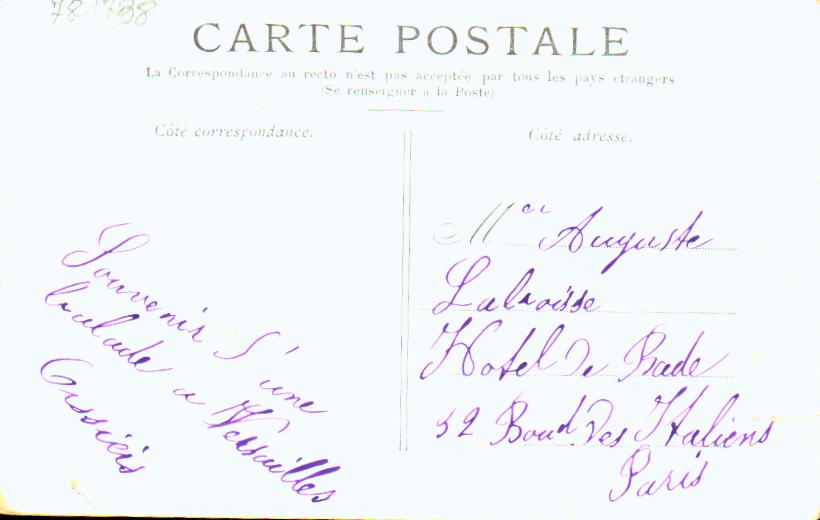 CARTE POSTALE
La Correspondance au recto n'est pas acceptée par tous les pays etrangers
(Se renseigner a la Poste)
Côté correspondance.
Souvenir d'une
balade a Versailles
Côté adresse.
Auguste
Hotel de Bade
32 Boud. des Italiens
Paris